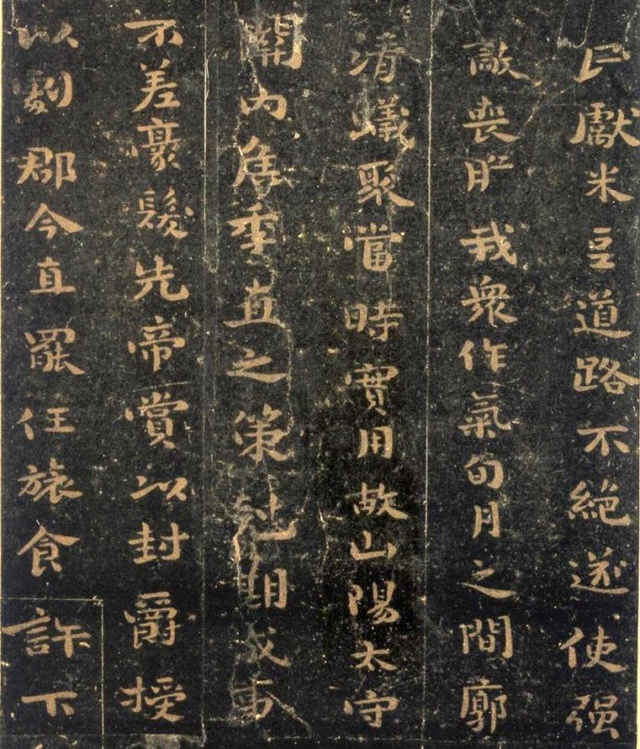 民獻米豆道路不絶遂使强
敵喪胆我衆作氣旬月之間廓
清蟻聚當時實用故山陽太守
關内侯季直之策尅期成事
不差豪髮先帝賞以封爵授
以劇郡今直罷任旅食許下